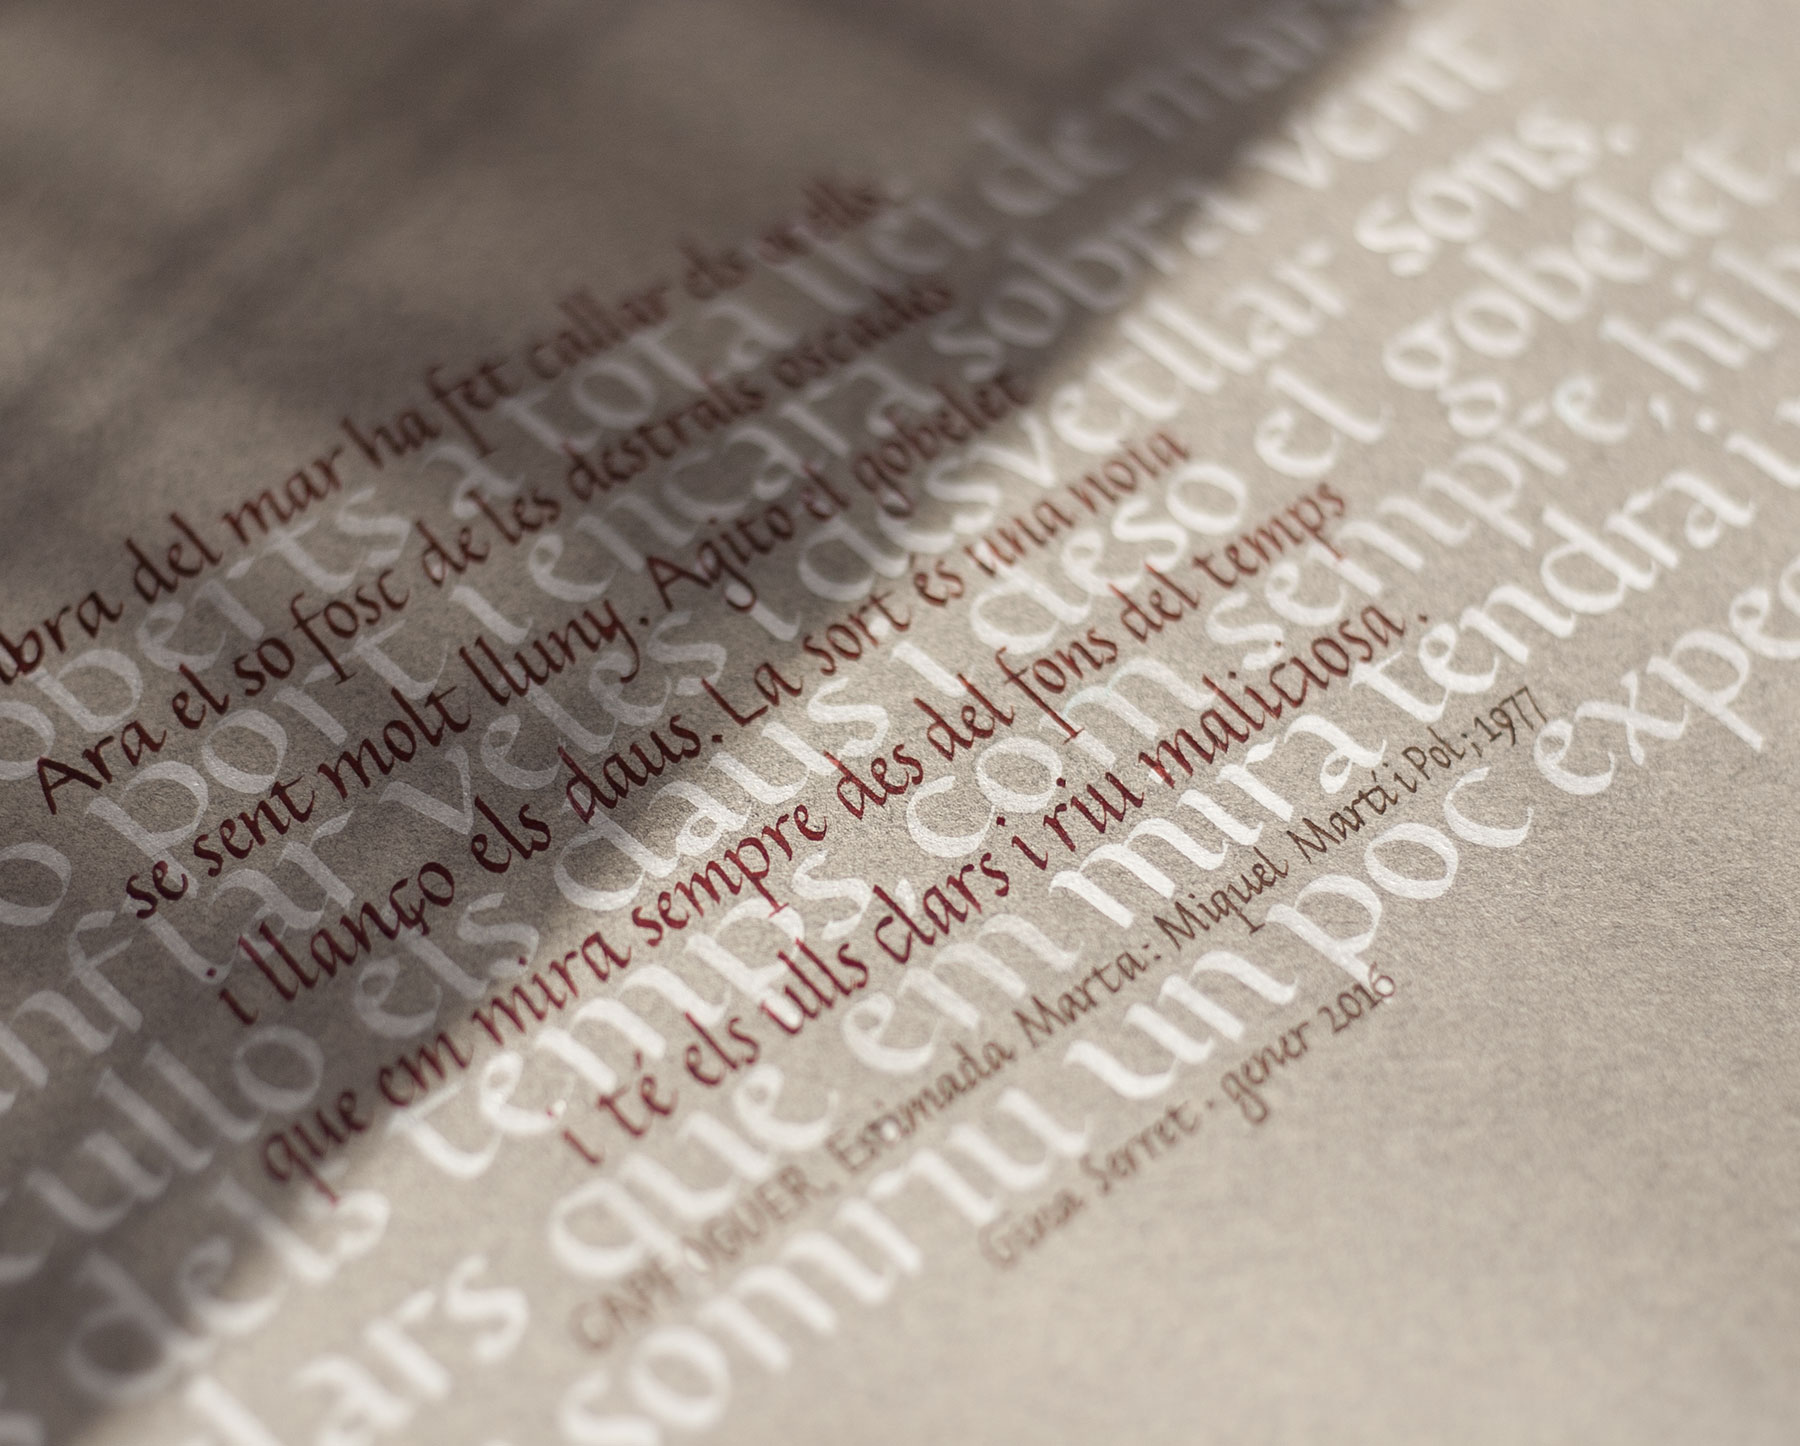 del mar ha fet callar els ocells.
Ara el so fosc de les destrals oscades
se sent molt lluny. Agito el gobelet
i llanço els daus. La sort és una noia
que em mira sempre des del fons del temps
i té els ulls clars i riu maliciosa.
CAPFOGUER, Estimada Marta: Miquel Martí i Pol; 1977
Gina Serret · gener 2016
oberts a tota llei de mar
port i encara sobra vent
inflar veles i desvetllar sons.
els daus i deso el gobelet
dels temps, com sempre, hi
clars que em mira tendra i
somriu un poc